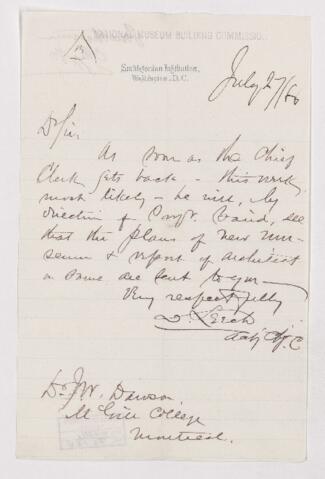 NATIONAL MUSEUM BUILDING COMMISSION
Smithsonian Institution,
Washington, D.C.
July 27/80
D Sir
As soon as the Chief
Clerk gets back - this week,
most likely - he will, by
direction of Prof. Baird, see
that the plans of new Mu-
seum & report of architect
on same are sent to you
Very respectfully
Actg C. C.
Dr J W. Dawson
McGill College
Montreal.